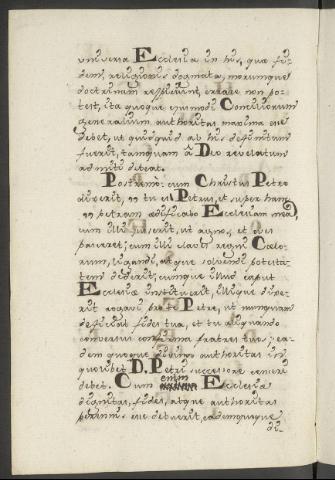 universa Ecclesia in his, quæ fi-
dem, religionis dogmata, morumque
doctrinam respiciunt, errare non po-
test, ita quoque ejusmodi Conciliorum
generalium authoritas maxima esse
debet, ut quidquid ab his definitum
fuerit, tamquam â Deo revelatum
admitti debeat.
Postremo: cum Christus Petro
dixerit, tu es Petrus, et super hanc
petram ædificabo Ecclesiam meã,
cum illi jusserit, ut agnos, et oves
pasceret; cum illi claves regni Cœlo-
rum, ligandi, atque solvendi potesta-
tem dederit, cumque illud caput
Ecclesiæ instituerit, illique dixe-
rit rogavi pro te Petre, ut nunquam
deficiat fides tua, et tu aliquando
conversus confirma fratres tuos; ea-
dem quoque fidei authoritas in
quolibet D. Petri successore censeri
debet. Cum enim Ecclesiæ
dignitas, fides, atque authoritas
perennis esse debuerit, eademque
di-